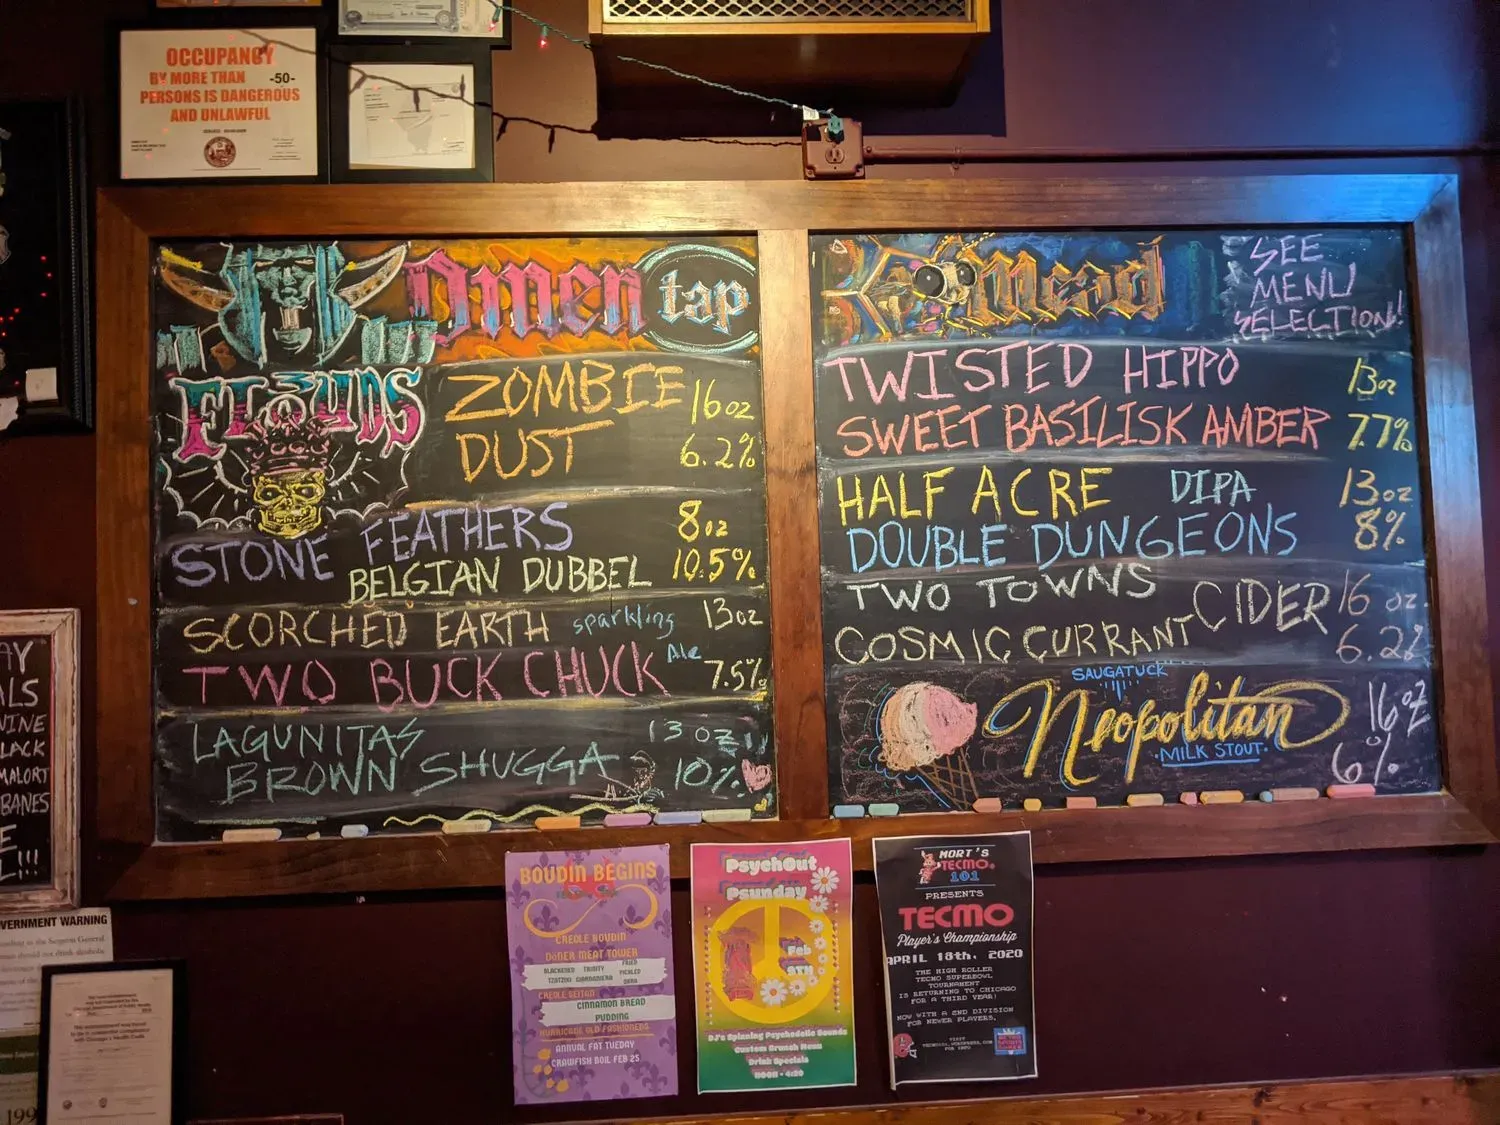 OCCUPANCY
BY MORE THAN -50-
PERSONS IS DANGEROUS
AND UNLAWFUL
Omen tap
FLOYDS
ZOMBIE
DUST
16oz
6.2%
STONE FEATHERS
BELGIAN DUBBEL
8oz
10.5%
SCORCHED EARTH sparkling
Ale
TWO BUCK CHUCK
13oz
7.5%
LAGUNITAS
BROWN SHUGGA
13 oz
10%
Mead
SEE
MENU
SELECTION!
TWISTED HIPPO
SWEET BASILISK AMBER
13oz
7.7%
HALF ACRE DIPA
DOUBLE DUNGEONS
13oz
8%
TWO TOWNS CIDER
COSMIC CURRANT
16 oz.
6.2%
SAUGATUCK
Neopolitan
MILK STOUT
16oz
6%
AY
ALS
WINE
LACK
MALORT
BANES
E
L!!!
VERNMENT WARNING
199
BOUDIN BEGINS
CREOLE BOUDIN
DöNER MEAT TOWER
BLACKENED TRINITY FRIED
TZATZIKI GIARDANIERA PICKLED
OKRA
CREOLE SEITAN
CINNAMON BREAD
PUDDING
HURRICANE OLD FASHIONEDS
ANNUAL FAT TUEDAY
CRAWFISH BOIL FEB 25
PsychOut
Psunday
Feb
9TH
DJ's Spinning Psychedelic Sounds
Custom Brunch Menu
Drink Specials
NOON - 4:20
MORT'S
TECMO
101
PRESENTS
TECMO
Player's Championship
APRIL 18th, 2020
THE HIGH ROLLER
TECMO SUPERBOWL
TOURNAMENT
IS RETURNING TO CHICAGO
FOR A THIRD YEAR!
NOW WITH A 2ND DIVISION
FOR NEWER PLAYERS.
VISIT
TECMO101.WORDPRESS.COM
FOR INFO